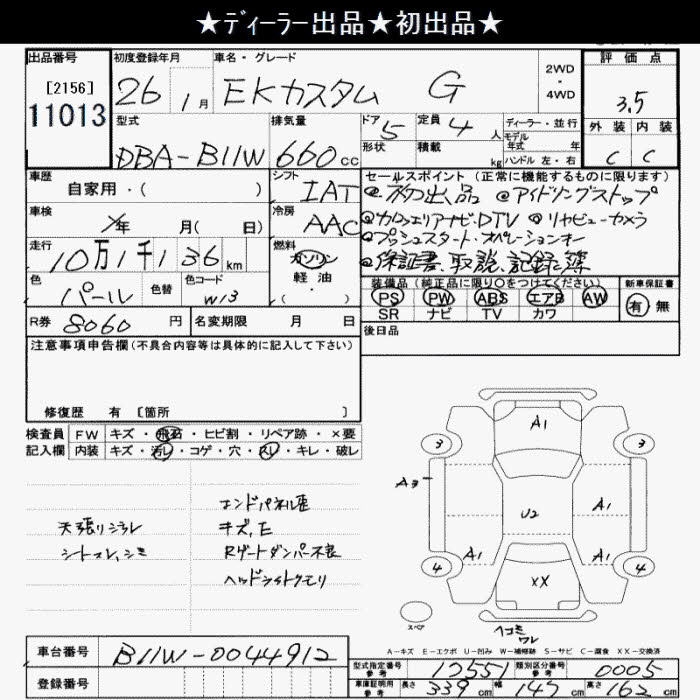 ★ディーラー出品★初出品★
出品番号 初度登録年月 車名・グレード 2WD・4WD 評価点
[2156] 11013 26 1月 EKカスタム G 3.5
型式 排気量 ドア 5 定員 4人 ディーラー・並行 外装 内装
DBA-B11W 660cc 形状 積載 kg モデル年式 年 ハンドル 左・右 C C
車歴 シフト セールスポイント (正常に機能するものに限ります)
自家用・( ) IAT ◎初出品 ◎アイドリングストップ
車検 年 月( 日) 冷房 AAC ◎カロッェリアナビ・DTV ◎リヤビューカメラ
走行 10万1千136km 燃料 ガソリン 軽油・( ) ◎プッシュスタート・オペレーションキー
◎保証書、取説、記録簿
色 パール 色替 色コード W13 装備品 (純正品に限り○をつけてください) 新車保証書
PS PW ABS エアB AW 有 無
SR ナビ TV カワ
R券 8060円 名変期限 月 日 後日品
注意事項申告欄 (不具合内容等は具体的に記入して下さい)
修復歴 有 [箇所 ]
検査員 FW キズ・飛石・ヒビ割・リペア跡・×要
記入欄 内装 キズ・汚レ・コゲ・穴・スレ・キレ・破レ
エンドパネル歪
天張りシラレ キズ、E
シートスレ、シミ Rゲートダンパー不良
ヘッドライトクモリ
A1
3 3
A3 A1
U2
A1 A1
4 4
XX
スペア ヘコミワレ
A-キズ E-エクボ U-凹み W-補修跡 S-サビ C-腐食 XX-交換済
車台番号 B11W-0044912 型式指定番号 参考 17551 類別区分番号 参考 0005
登録番号 車庫証明用 参考 長さ 339cm 幅 147cm 高さ 162cm